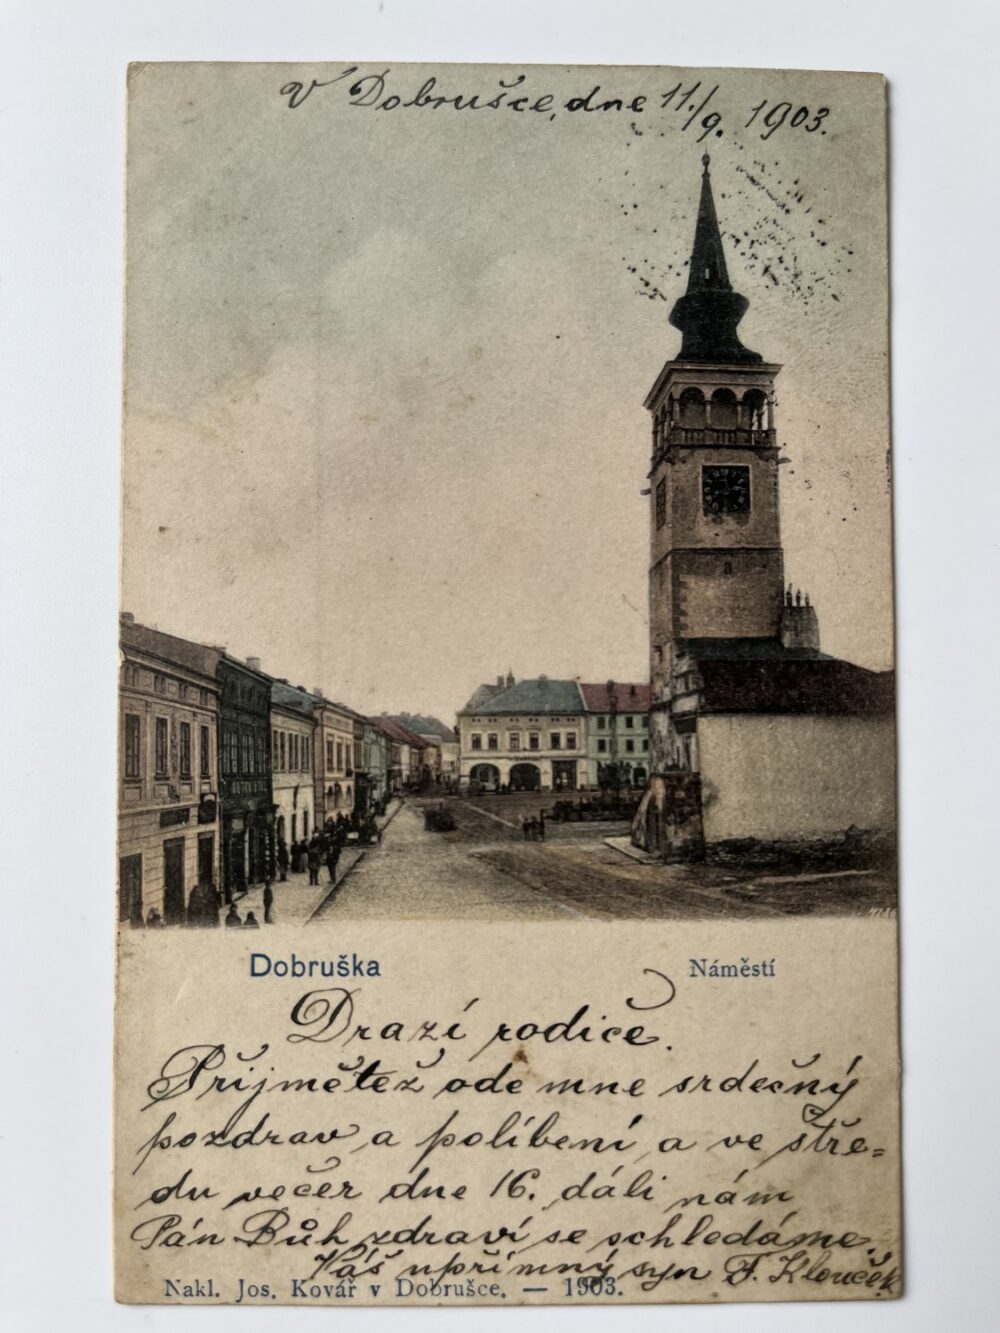 V Dobrušce, dne 11./9. 1903.
Dobruška
Náměstí
Drazí rodiče.
Přijmětež ode mne srdečný
pozdrav a políbení a ve stře=
du večer dne 16. dáli nám
Pán Bůh zdraví se schledáme.
Váš upřímný syn F. Klouček
Nakl. Jos. Kovář v Dobrušce. — 1903.